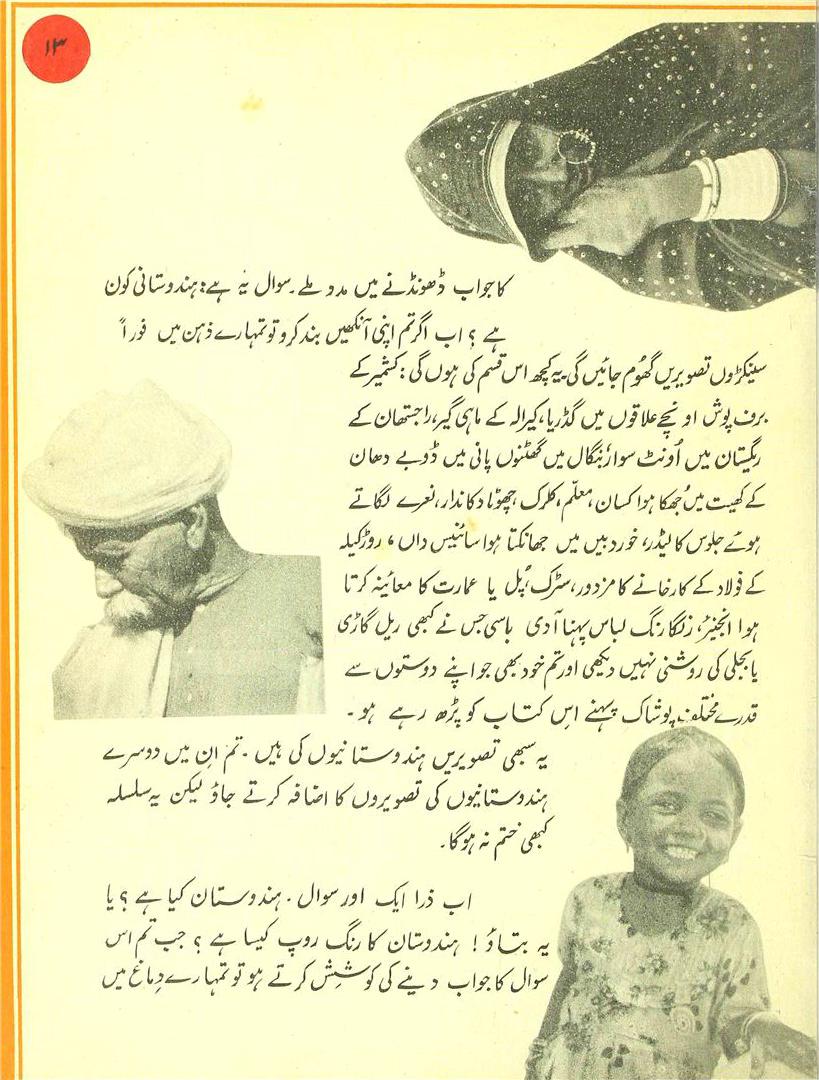 ۱۳
کا جواب ڈھونڈنے میں مدد ملے۔ سوال یہ ہے: ہندوستانی کون
ہے ؟ اب اگر تم اپنی آنکھیں بند کرو تو تمہارے ذہن میں فوراً
سینکڑوں تصویریں گھُوم جائیں گی یہ کچھ اس قسم کی ہوں گی : کشمیر کے
برف پوش اونچے علاقوں میں گڈریا، کیرالہ کے ماہی گیر، راجستھان کے
ریگستان میں اُونٹ سوار، بنگال میں گھٹنوں پانی میں ڈوبے دھان
کے کھیت میں جُھکا ہوا کسان، معلّم، کلرک، چھوٹا دکاندار، نعرے لگاتے
ہوئے جلوس کا لیڈر، خوردبیں میں جھانکتا ہوا سائنیس داں، روڑکیلہ
کے فولاد کے کارخانے کا مزدور، سڑک، پُل یا عمارت کا معائنہ کرتا
ہوا انجنیر، رنگا رنگ لباس پہنا آدی باسی جس نے کبھی ریل گاڑی
یا بجلی کی روشنی نہیں دیکھی اور تم خود بھی جو اپنے دوستوں سے
قدرے مختلف پوشاک پہنے اس کتاب کو پڑھ رہے ہو ۔
یہ سبھی تصویریں ہندوستانیوں کی ہیں ۔ تم ان میں دوسرے
ہندوستانیوں کی تصویروں کا اضافہ کرتے جاؤ لیکن یہ سلسلہ
کبھی ختم نہ ہوگا۔
اب ذرا ایک اور سوال ۔ ہندوستان کیا ہے ؟ یا
یہ بتاؤ ! ہندوستان کا رنگ روپ کیسا ہے ؟ جب تم اس
سوال کا جواب دینے کی کوشِش کرتے ہو تو تمہارے دِماغ میں